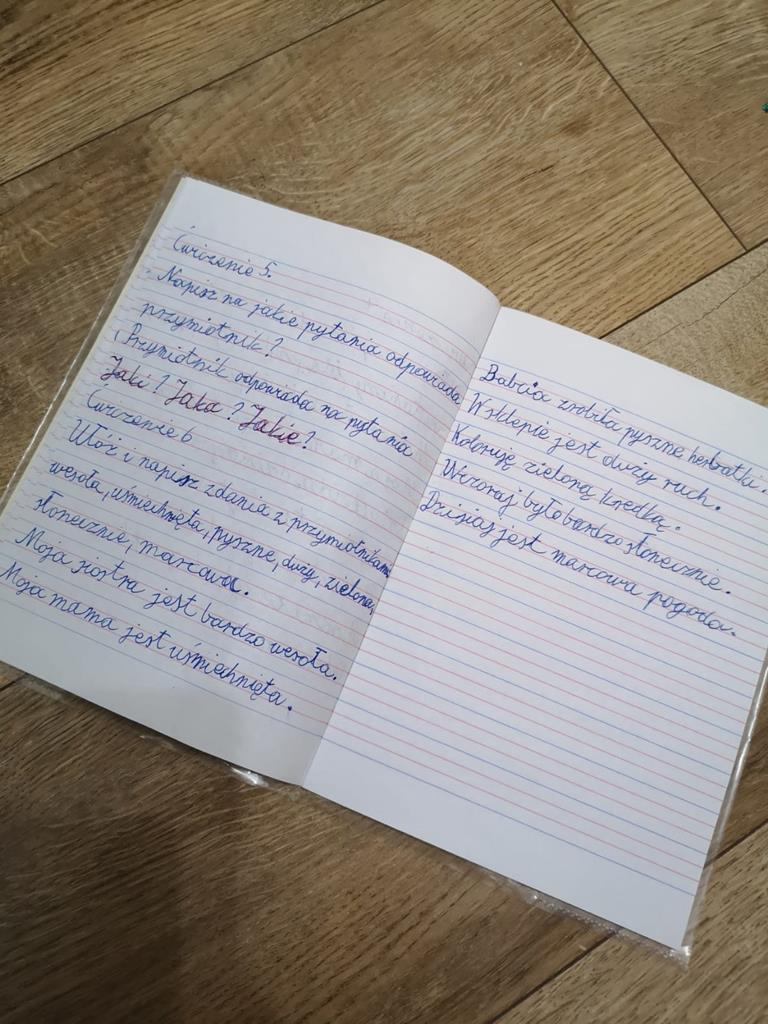 Ćwiczenie 5.
Napisz na jakie pytania odpowiada
przymiotnik?
Przymiotnik odpowiada na pytania
Jaki? Jaka? Jakie?
Ćwiczenie 6
Ułóż i napisz zdania z przymiotnikami
wesoła, uśmiechnięta, pyszne, duży, zielona,
słonecznie, marcowa.
Moja siostra jest bardzo wesoła.
Moja mama jest uśmiechnięta.
Babcia zrobiła pyszne herbatki.
W sklepie jest duży ruch.
Koloruję zieloną kredką.
Wczoraj było bardzo słonecznie.
Dzisiaj jest marcowa pogoda.